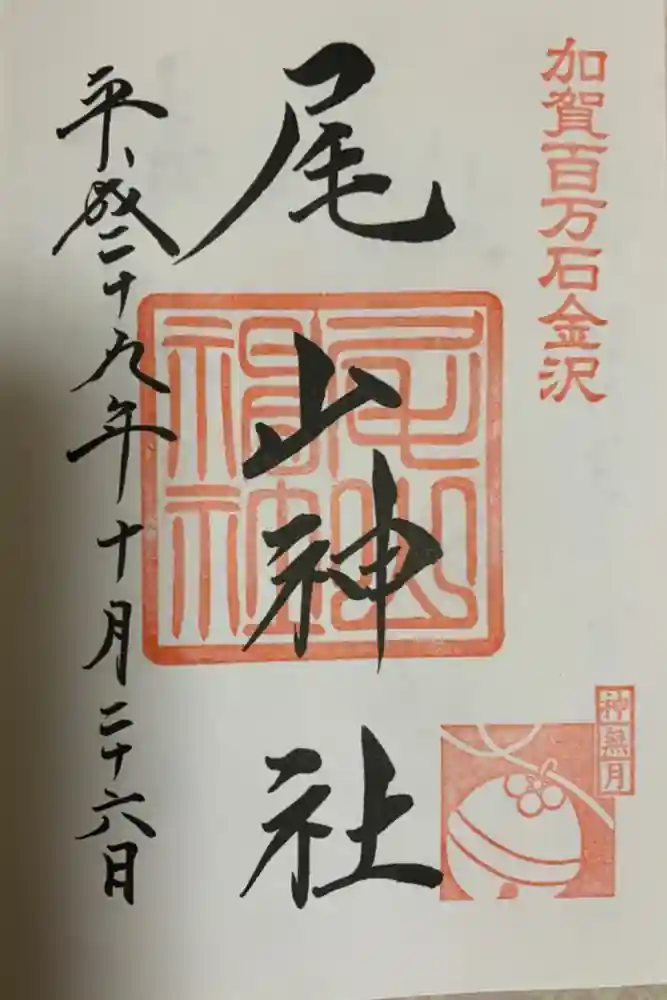 加賀百万石金沢
尾山神社
尾山神社
神無月
平成二十九年十月二十六日